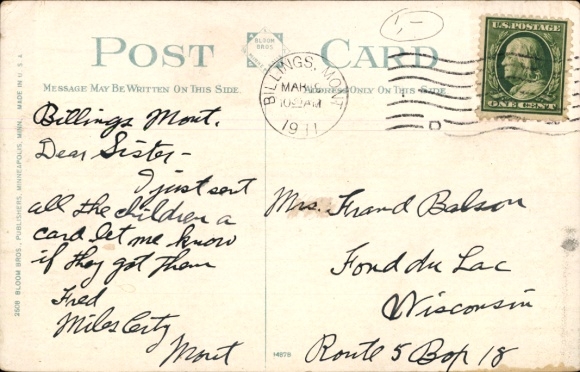 POST CARD
BLOOM
BROS
MESSAGE MAY BE WRITTEN ON THIS SIDE.
ADDRESS ONLY ON THIS SIDE
BILLINGS, MONT
MAR
1911
U.S. POSTAGE
ONE CENT
2508 BLOOM BROS., PUBLISHERS, MINNEAPOLIS, MINN. MADE IN U.S.A
Billings Mont.
Dear Sister-
I just sent
all the children a
card let me know
if they got them
Fred
Miles City
Mont
14878
Mrs. Frand Balson
Fond du Lac
Wisconsin
Route 5 Box 18